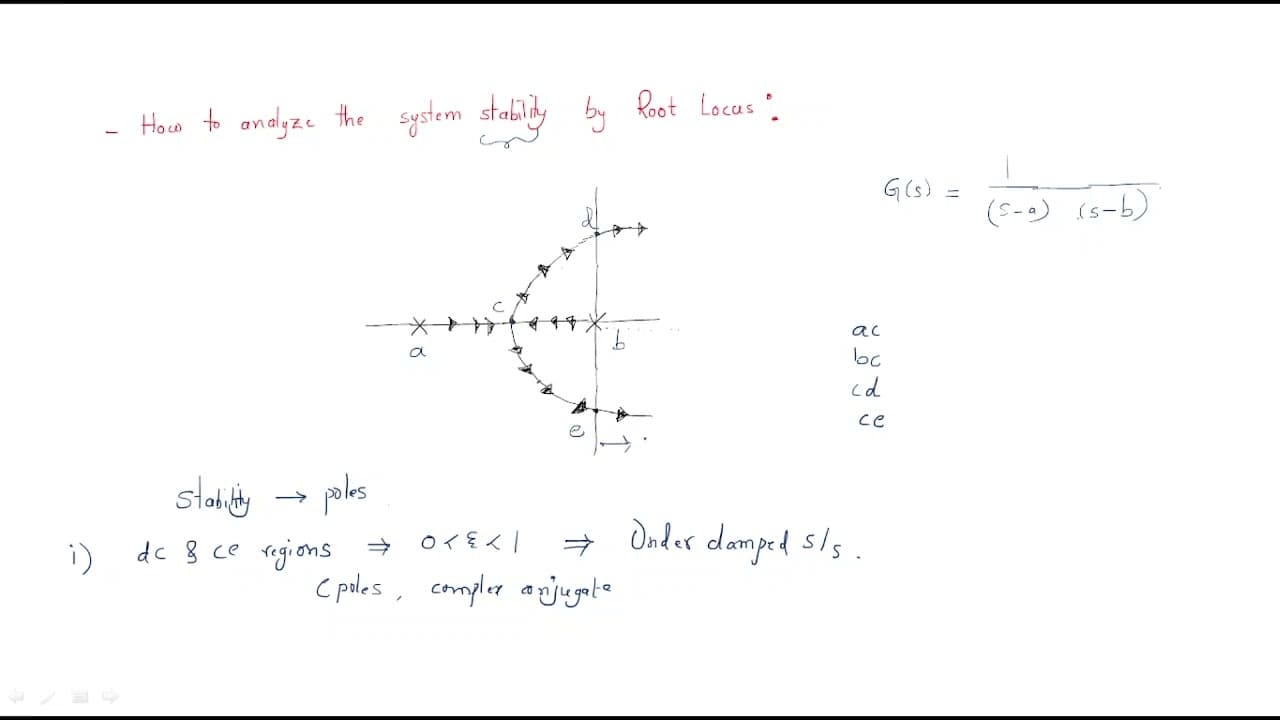 - How to analyze the system stability by Root Locus:
G(s) = 1
(s-a) (s-b)
d
c
a
b
e
ac
bc
cd
ce
Stability → poles
i) dc & ce regions ⇒ 0 < ξ < 1 ⇒ Under damped s/s.
C poles, complex conjugate